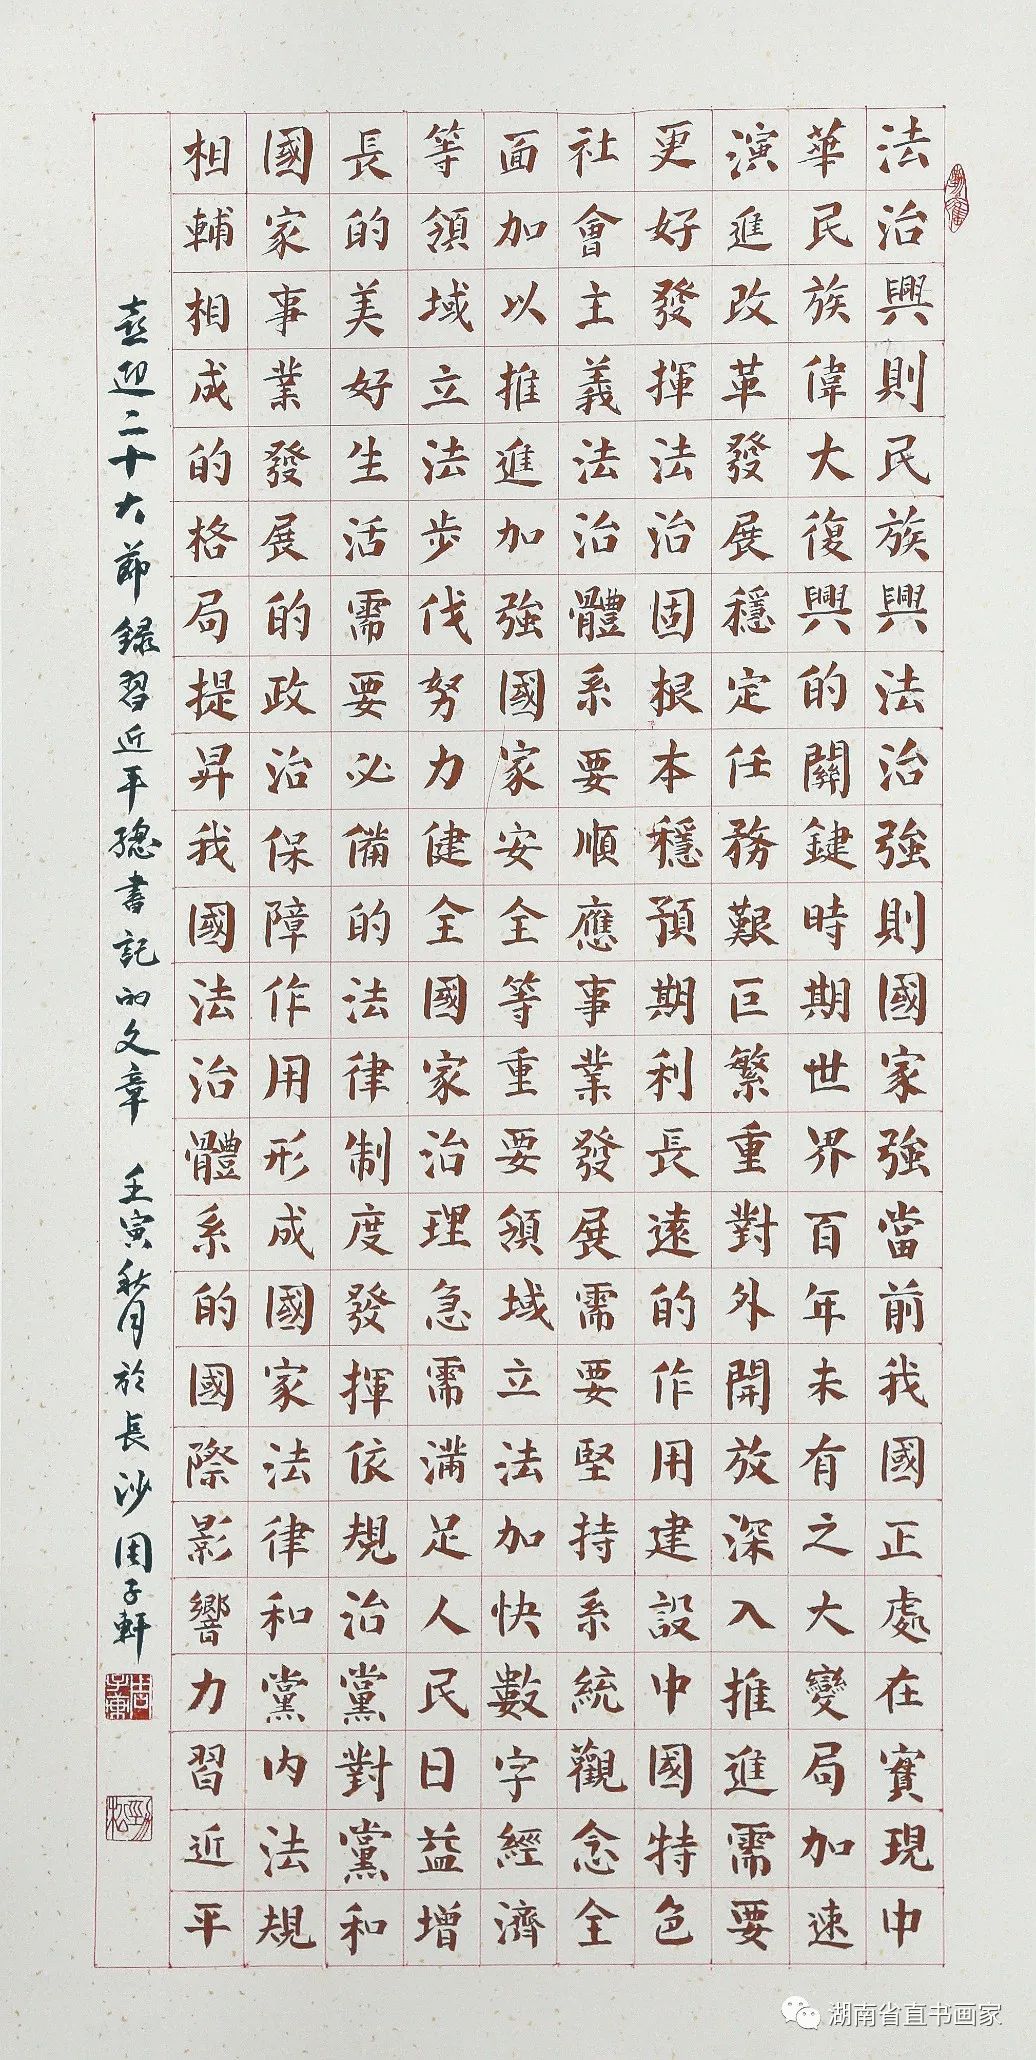 法治興則民族興法治強則國家強當前我國正處在實現中
華民族偉大復興的關鍵時期世界百年未有之大變局加速
演進改革發展穩定任務艱巨繁重對外開放深入推進需要
更好發揮法治固根本穩預期利長遠的作用建設中國特色
社會主義法治體系要順應事業發展需要堅持系統觀念全
面加以推進加強國家安全等重要領域立法加快數字經濟
等領域立法步伐努力健全國家治理急需滿足人民日益增
長的美好生活需要必備的法律制度發揮依規治黨對黨和
國家事業發展的政治保障作用形成國家法律和黨內法規
相輔相成的格局提昇我國法治體系的國際影響力習近平
喜迎二十大節錄習近平總書記的文章 壬寅秋月於長沙周子軒
湖南省直书画家